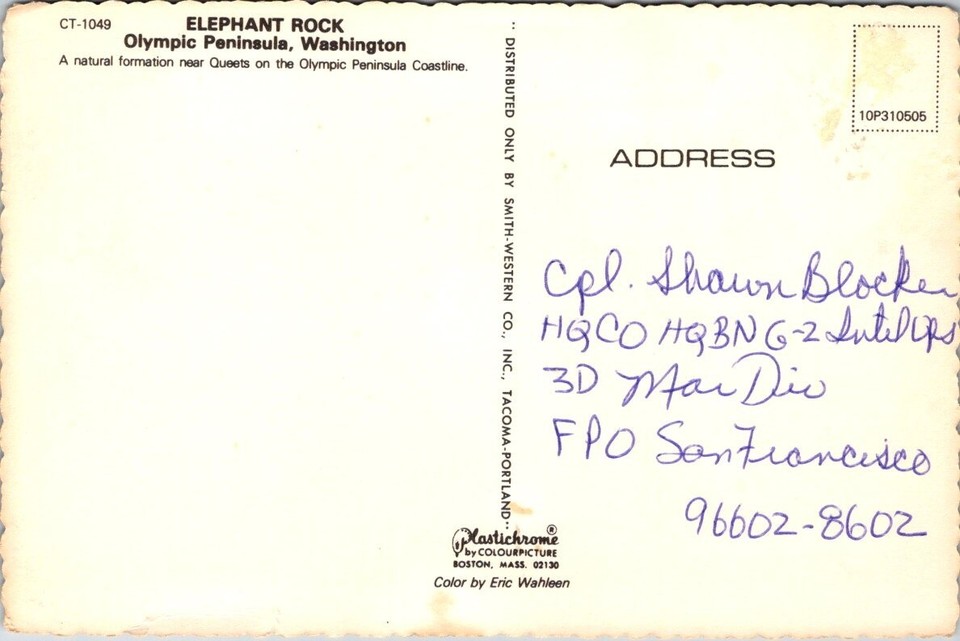 CT-1049
ELEPHANT ROCK
Olympic Peninsula, Washington
A natural formation near Queets on the Olympic Peninsula Coastline.
DISTRIBUTED ONLY BY SMITH-WESTERN CO., INC., TACOMA-PORTLAND
Plastichrome®
by COLOURPICTURE
BOSTON, MASS. 02130
Color by Eric Wahleen
10P310505
ADDRESS
Cpl. Shawn Blocker
HQCO HQBN G-2 Intel Ops
3D Mar Div
FPO San Francisco
96602-8602